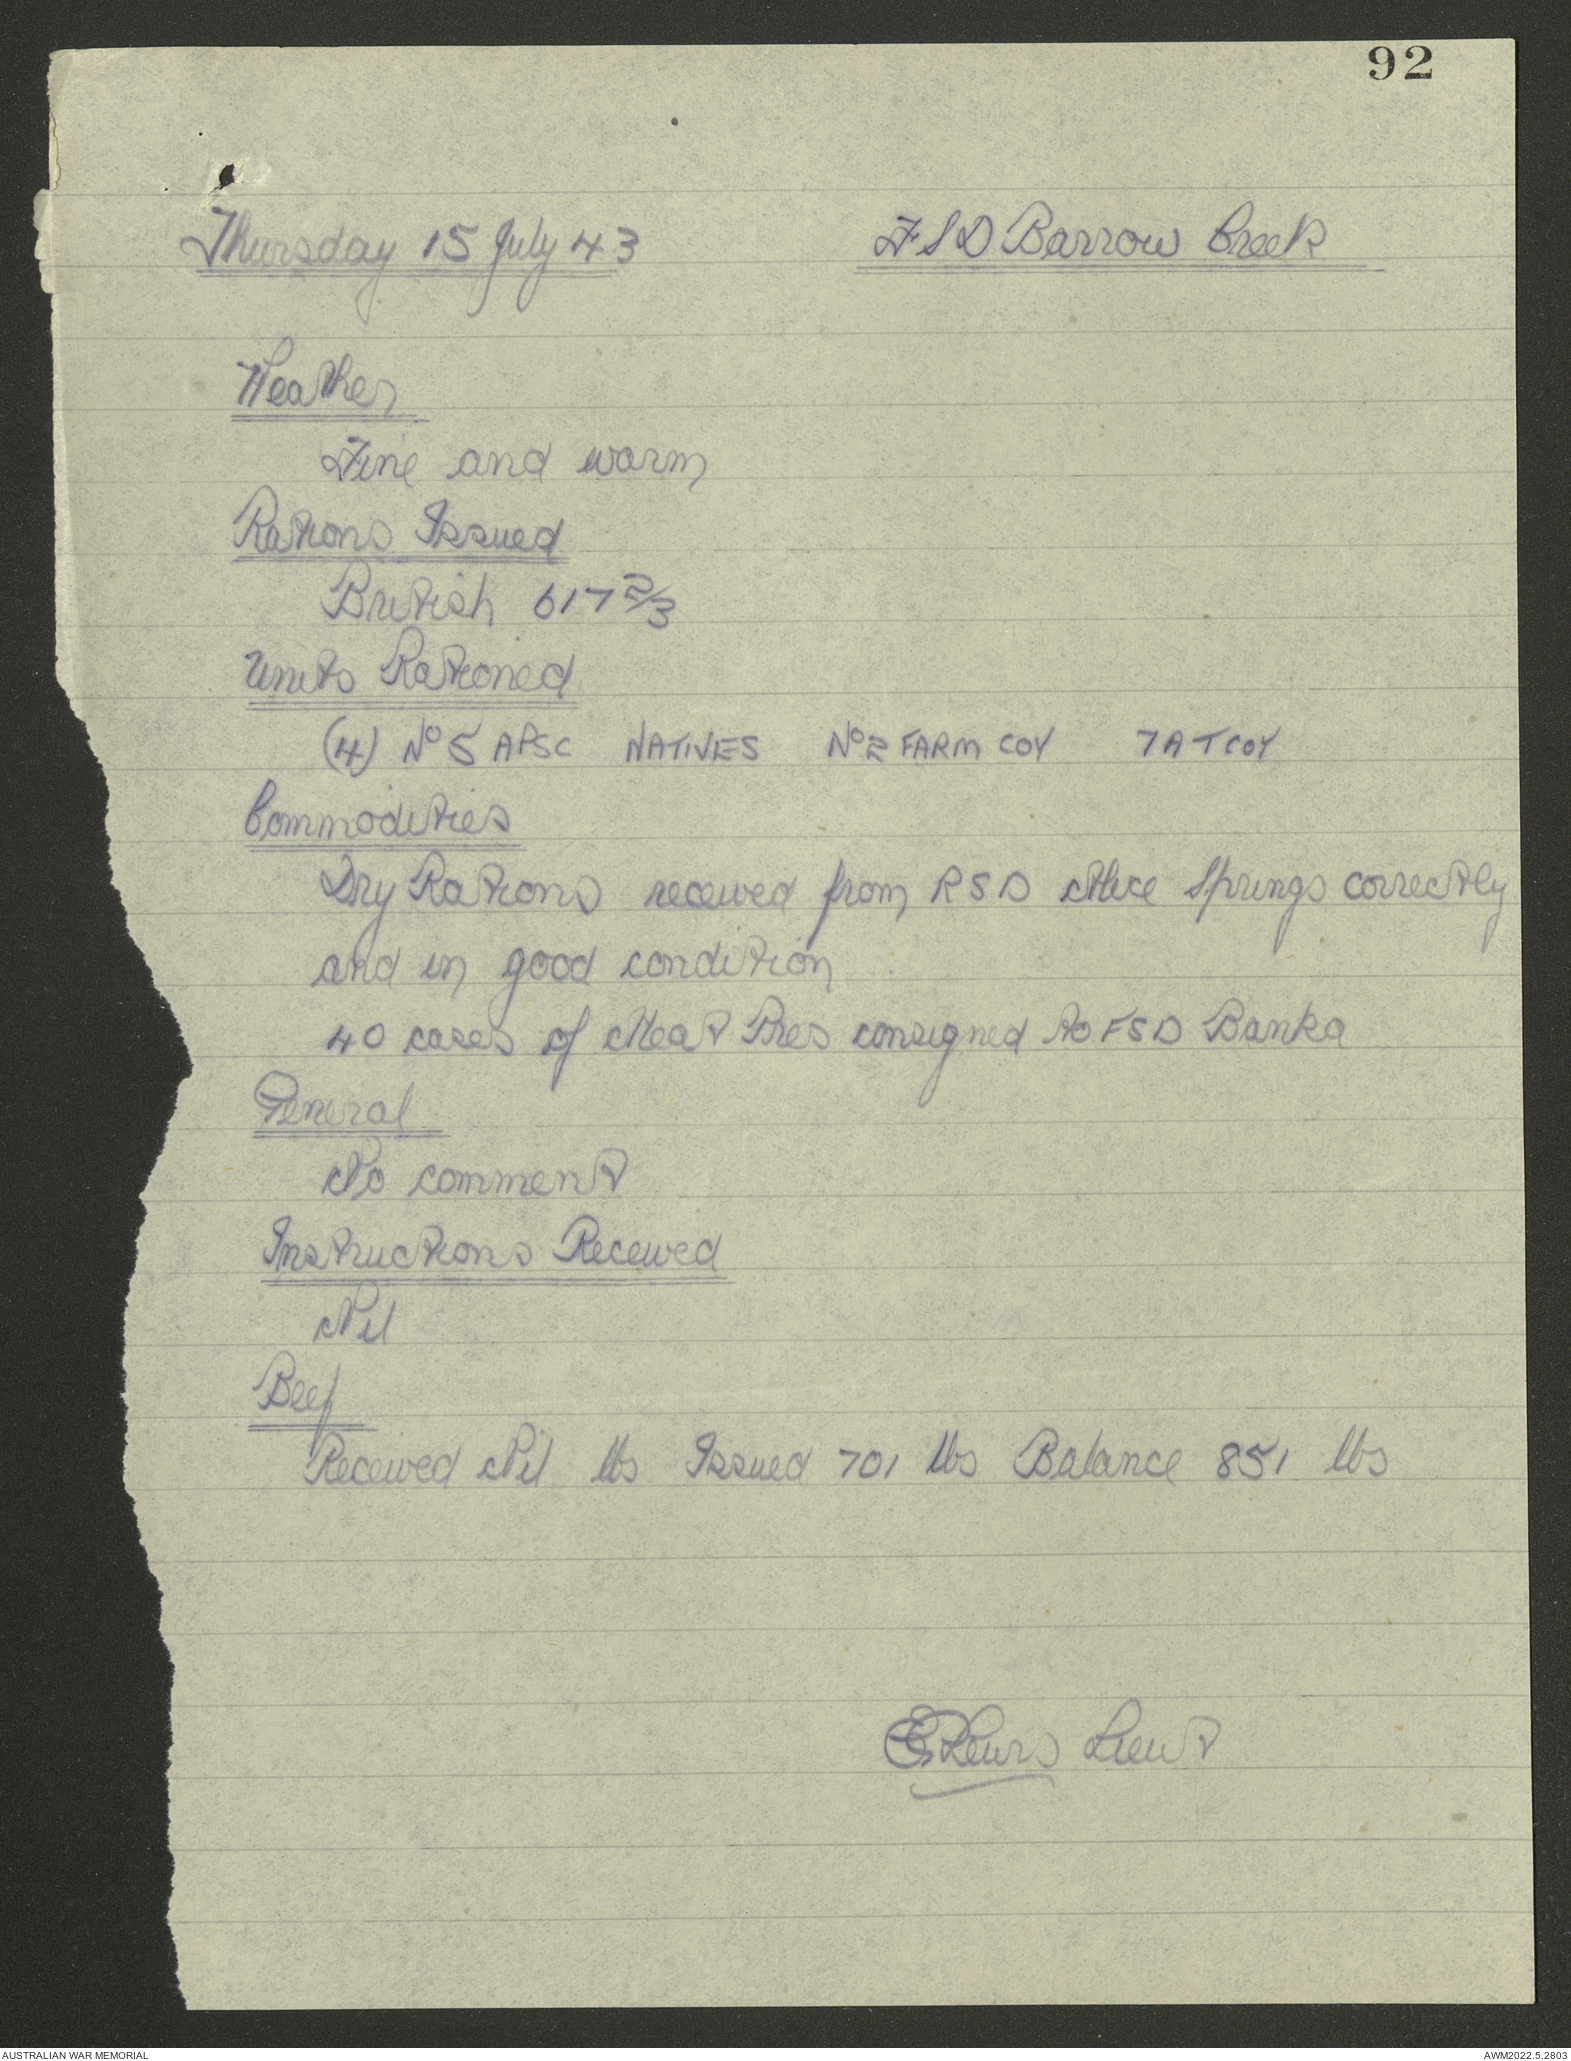 92
Thursday 15 July 43 FSD Barrow Creek
Weather
Fine and warm
Rations Issued
British 617 2/3
Units Rationed
(4) No 5 APSC NATIVES No 2 FARM COY 7 A T COY
Commodities
Dry Rations received from RSD Alice Springs correctly
and in good condition
40 cases of Meat Pres consigned to FSD Banka
General
No comment
Instructions Received
Nil
Beef
Received Nil lbs Issued 701 lbs Balance 851 lbs
Lieut
AUSTRALIAN WAR MEMORIAL AWM2022.5.2803